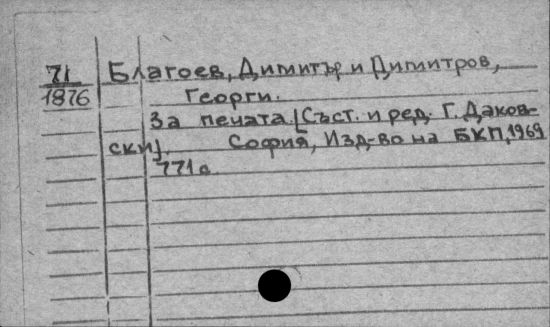 71 Благоев, Димитър и Димитров,
1876 Георги.
За печата. [Съст. и ред. Г. Даков-
ски]. София, Изд-во на БКП, 1969
771 с.